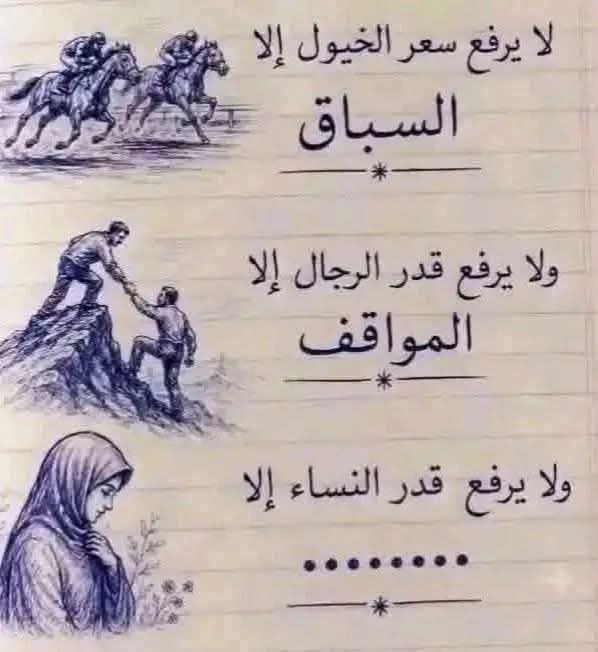 لا يرفع سعر الخيول إلا
السباق
ولا يرفع قدر الرجال إلا
المواقف
ولا يرفع قدر النساء إلا
........